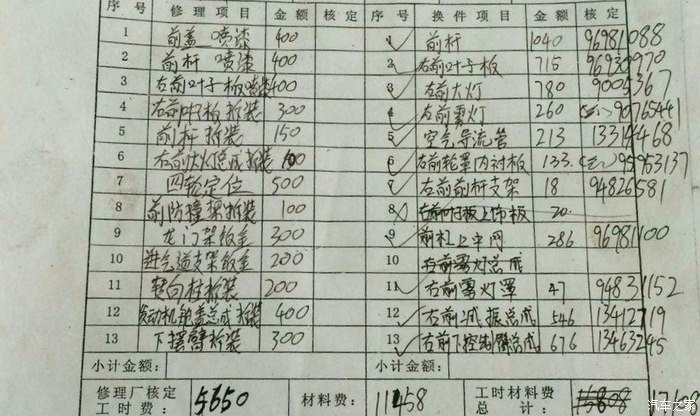 序号 修理项目 金额 核定 序号 换件项目 金额 核定
1 前盖喷漆 400 1 前杆 1040 96981088
2 前杆喷漆 400 2 右前叶子板 715 96930970
3 右前叶子板喷漆 400 3 右前大灯 780 9005367
4 右前叶板拆装 300 4 右前雾灯 260 90765441
5 前杆拆装 150 5 空气导流管 213 13314468
6 右前大灯总成拆装 100 6 右前轮罩内衬板 133. 95953137
7 四轮定位 500 7 右前前杆支架 18 94826581
8 前防撞架拆装 100 8 右前叶板上饰板 20
9 龙门架钣金 300 9 前杠上中网 286 96981100
10 进气道支架钣金 200 10 右前雾灯总成
11 转向柱拆装 200 11 右前雾灯罩 47 94831152
12 发动机舱盖总成拆装 400 12 右前减振总成 546 13412719
13 下摆臂拆装 300 13 右前下控制臂总成 676 13463245
小计金额: 小计金额:
修理厂核定工时费: 5650 材料费: 11458 工时材料费总计
汽车之家